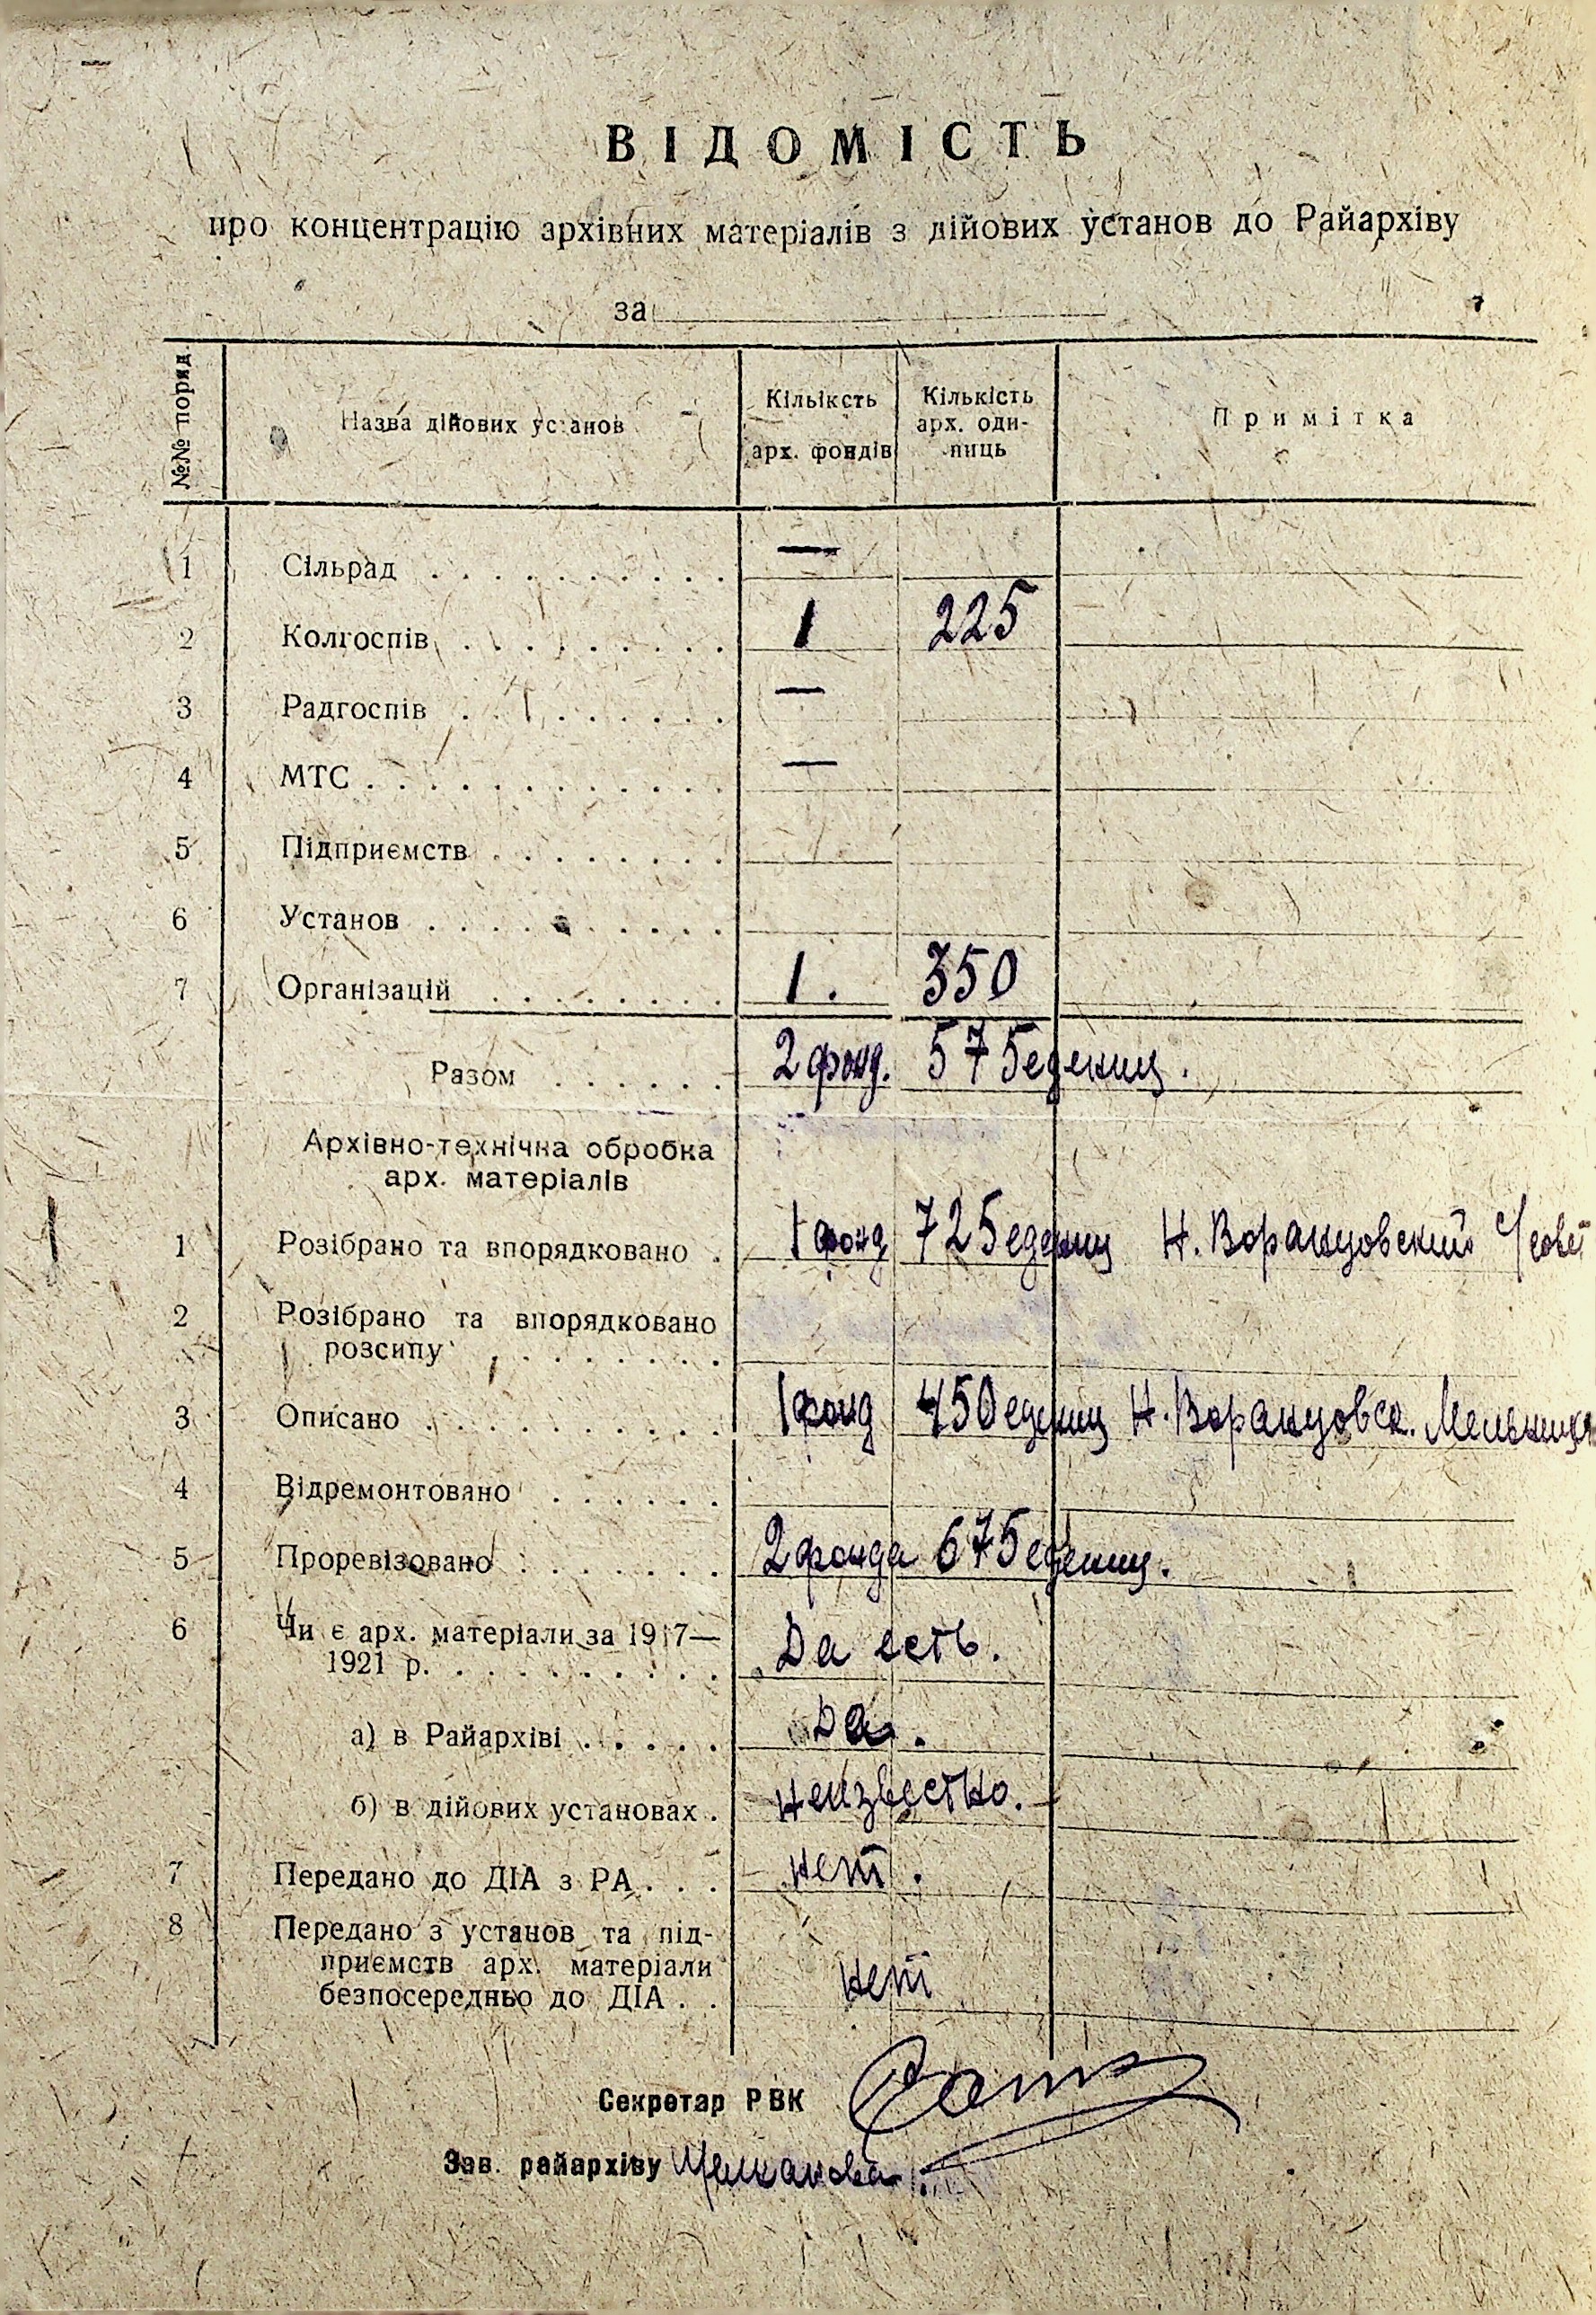 ВІДОМІСТЬ
про концентрацію архівних матеріалів з дійових установ до Райархіву
за
№№ поряд.
Назва дійових установ
Кількість
арх. фондів
Кількість
арх. оди-
ниць
Примітка
1 Сільрад . . . . . . . . . . —
2 Колгоспів . . . . . . . . . 1 225
3 Радгоспів . . . . . . . . —
4 МТС . . . . . . . . . . . . —
5 Підприємств . . . . . . . .
6 Установ . . . . . . . . . .
7 Організацій . . . . . . . . 1. 350
Разом . . . . . . 2 фонд. 575 едениц.
Архівно-технічна обробка
арх. матеріалів
1 Розібрано та впорядковано . 1 фонд 725 едениц Н. Воранцовский
2 Розібрано та впорядковано
розсипу . . . . . . . .
3 Описано . . . . . . . . . . 1 фонд 450 едениц Н. Воранцовск.
4 Відремонтовано . . . . . .
5 Проревізовано . . . . . . . 2 фонда 675 едениц.
6 Чи є арх. матеріали за 1917—
1921 р. . . . . . . . . . Да есть.
а) в Райархіві . . . . . Да.
б) в дійових установах . неизвестно.
7 Передано до ДІА з РА . . . нет.
8 Передано з установ та під-
приємств арх. матеріали
безпосередньо до ДІА . . нет
Секретар РВК
Зав. райархіву